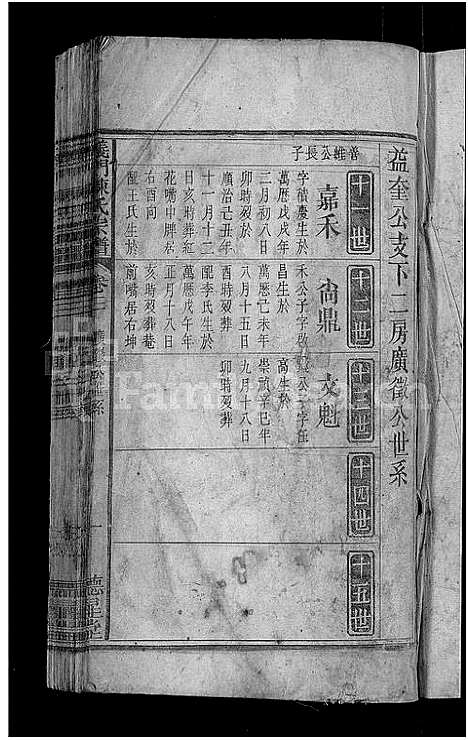 益奎公支下二房廣徵公世系
十一世
十二世
十三世
十四世
十五世
普維公長子
嘉禾
字積慶生於
萬歷戊戌年
二月初八日
卯時歿於
順治己丑年
十一月十二
日亥時葬紅
花嘴中牌
右酉向
配王氏生於
尚鼎
禾公子字啟
昌生於
萬歷己未年
八月十五日
酉時歿葬
配李氏生於
萬歷戊午年
正月十八日
亥時歿葬菴
前嘴居右坤
文魁
公子字在
高生於
崇禎辛巳年
九月十八日
卯時歿葬
義門陳氏宗譜
卷二
廣徵公世系
一
德星堂